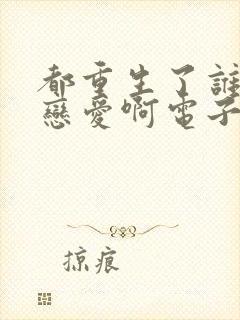 都重生了誰
戀愛啊電子
掠痕